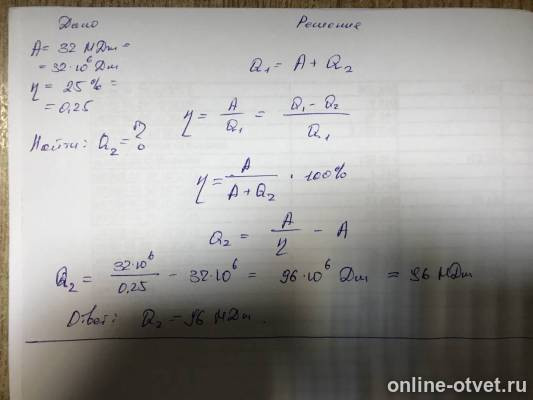 Дано
A = 32 МДж =
= 32·10⁶ Дж
η = 25 % =
= 0,25
Найти: Q₂ = ?
Решение
Q₁ = A + Q₂
η = A/Q₁ = (Q₁ - Q₂)/Q₁
η = A/(A + Q₂) · 100%
Q₂ = A/η - A
Q₂ = 32·10⁶/0,25 - 32·10⁶ = 96·10⁶ Дж = 96 МДж
Ответ: Q₂ = 96 МДж.
online-otvet.ru